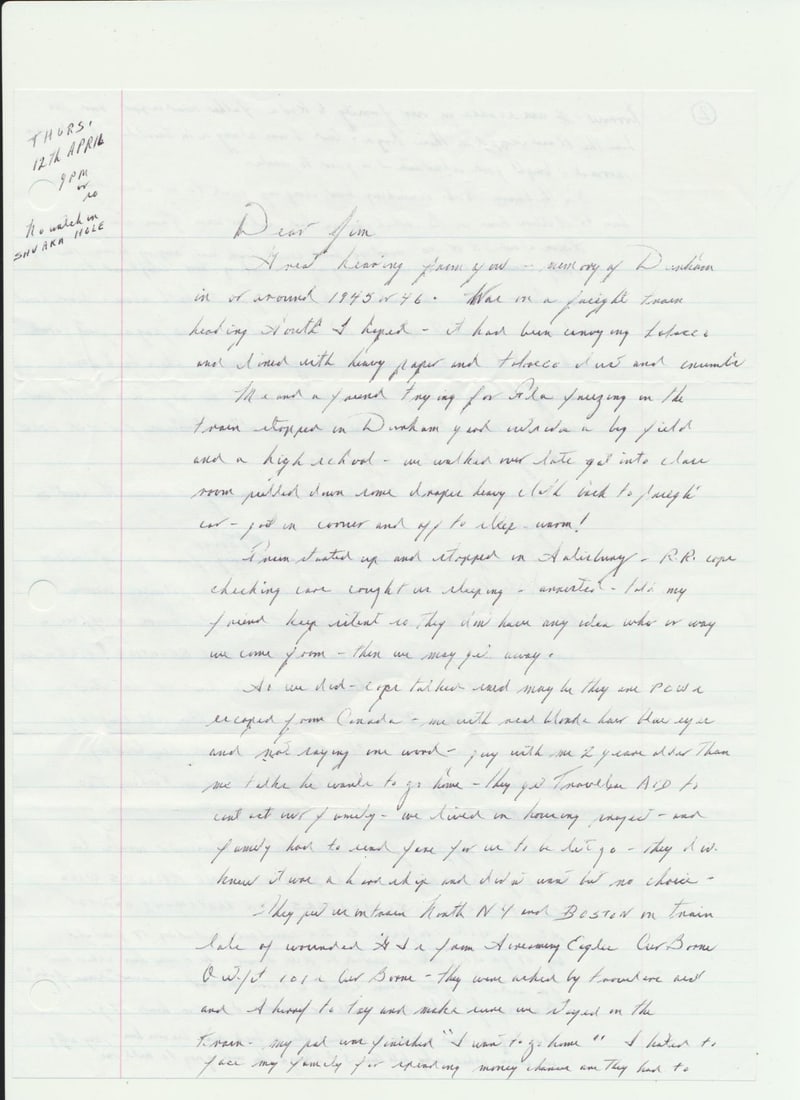 THURS.
12TH APRIL
9 PM
or
so
No watch in
HOLE
Dear Jim
Great hearing from you - memory of Durham
in or around 1945 or 46. Was in a freight train
heading North I hoped - it had been carrying tobacco
and lined with heavy paper and tobacco dust and crumbs
Me and a friend trying for Fla freezing in the
train stopped in Durham yard a big field
and a high school - we walked over late got into class
room pulled down some drapes heavy cloth back to freight
car - got in corner and off to sleep - warm!
Train started up and stopped in Salisbury - R.R. cops
checking cars caught us sleeping - arrested - told my
friend keep silent so they don't have any idea who or way
we come from - then we may get away.
As we did - cops talked said maybe they are POWs
escaped from Canada - me with real blonde hair blue eyes
and not saying one word - guy with me 2 years older than
me talks he wants to go home - they get Travellers AID to
contact our family - we lived in housing project - and
family had to send fare for us to be let go - they did.
knew it was a hardship and didn't want but no choice -
They put us on train North NY and BOSTON on train
lots of wounded GIs from Screaming Eagles Air Borne
Outfit 101s Air Borne - they were asked by travelers aid
and Sheriff to try and make sure we stayed on the
train - my pal was finished "I want to go home" I hated to
face my family for spending money chances are they had to